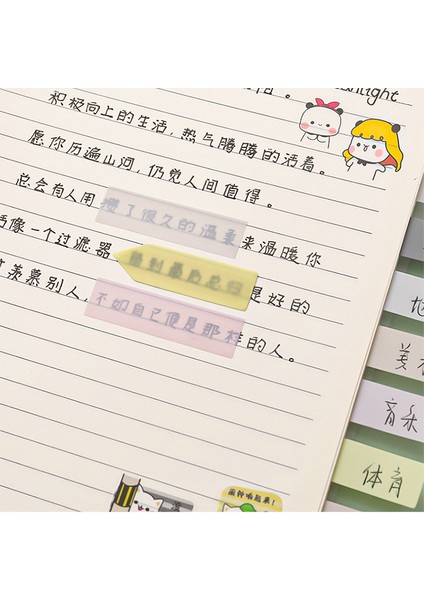 nlight
积极向上的生活,热气腾腾的活着。
愿你历遍山河,仍觉人间值得。
总会有人用攒了很久的温柔来温暖你
活像一个过滤器 是好的
其羡慕别人,不如自己便是那样的人。
美
音乐
体育
闹铃响起来!